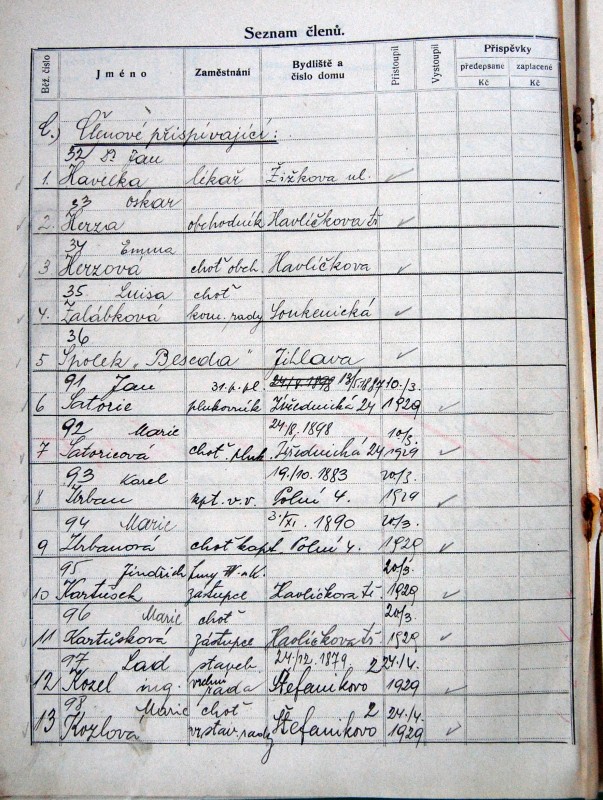 Seznam členů.
Běž. číslo
Jméno
Zaměstnání
Bydliště a
číslo domu
Přistoupil
Vystoupil
Příspěvky
předepsane
zaplacené
Kč
Kč
C.) Členové přispívající:
32 Dr Jan
1. Havelka lékař Žižkova ul.
33 Oskar
2. Herza obchodník Havlíčkova tř
34 Emma
3 Herzová choť obch. Havlíčkova
35 Luisa choť
4. Zalábková kom. rady Soukenická
36
5 Spolek „Beseda" Jihlava
91 Jan 31. p. pl. 24/8. 1898 13/5. 1887 10./3.
6 Satorie plukovník Úřednická 24 1929
92 Marie 24/8. 1898 10/3.
7 Satorieová choť pluk. Úřednická 24 1929
93 Karel 19./10. 1883 20/3.
8 Urban kpt. v. v. Polní 4. 1929
94 Marie 31/XI. 1890 20/3.
9 Urbanová choť kapt. Polní 4. 1929
95 Jindřich 20/3.
10 Kartusek zástupce Havlíčkova tř. 1929
96 Marie choť 20/3.
11 Kartusková zástupce Havlíčkova tř. 1929
97 Lad staveb 24/12. 1879 2 24/4.
12 Kozel ing. vrchní rada Štefanikovo 1929
98 Marie choť 2 24./4.
13 Kozlova vr. stav. rady Štefanikovo 1929